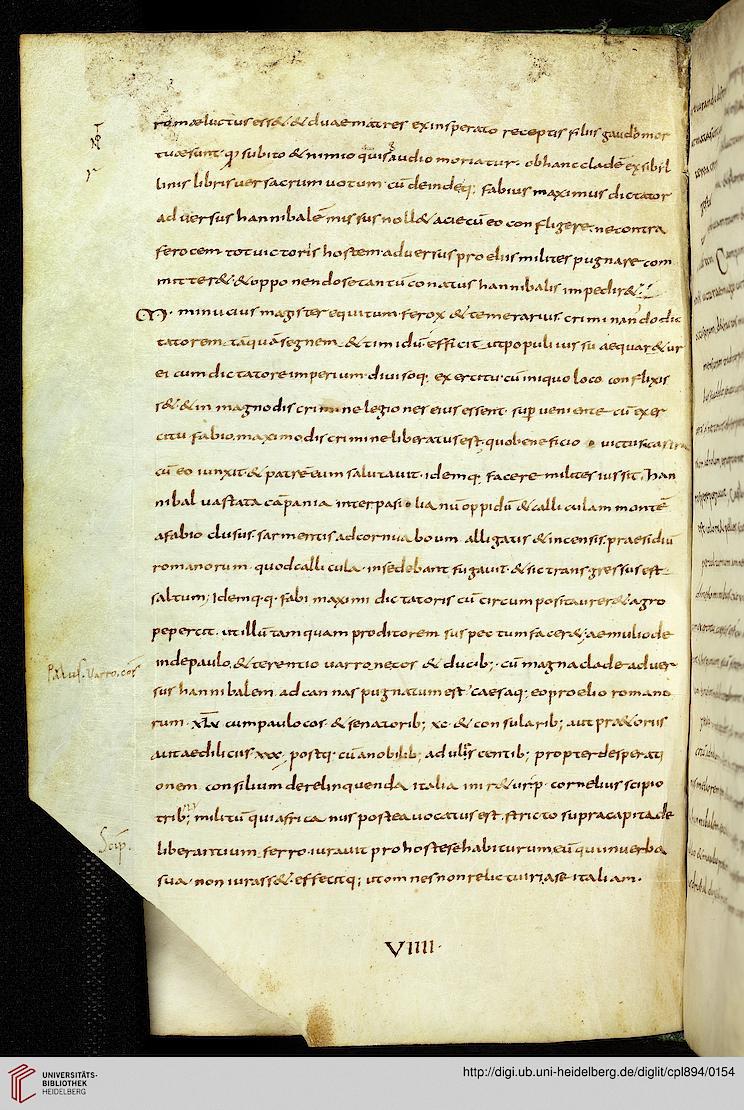 romae luctus esset & duae matres ex insperato receptis filiis gaudio mor
tuae sunt quod subito & nimio quis audio moriatur. ob hanc cladē ex sibil
linis libris ver sacrum uotum. cū deinde q; fabius maximus dictator
aduersus hannibalē missus noll& acie cū eo confligere. ne contra
ferocem tot uictoris hostem aduersus proeliis milites pugnare com
mitter& & opponendo se tantū conatus hannibalis impedir&
M. minucius magister equitum ferox & temerarius criminando dic
tatorem tāquā segnem & timidū efficit ut populi iussu aequar&ur
ei cum dictatore imperium. diuisoq; exercitu cū iniquo loco conflixis
s& & in magno discrimine legiones eius essent. superueniente cū exer
citu fabio maximo discrimine liberatus est, quo beneficio uictus castra
cū eo iunxit & patrē eum salutauit. idemq; facere milites iussit, han
nibal uastata cāpania inter pasilianū oppidū & calliculam montē
a fabio clusus. sarmentis ad cornua boum alligatis & incensis. praesidiū
romanorum quod callicula insedebant fugauit. & sic transgressus est
saltum; Idemq. q. fabi maximi dictatoris cū circumposita urer& agro
pepercit. ut illū tamquam proditorem suspectum facer&; aemulio de
inde paulo & terentio uarrone cos & ducib; cū magna clade aduer
sus hannibalem ad cannas pugnatum est caesaq; eo proelio romano
rum xLv cum paulo cos & senatorib; xc & consularib; aut pr&oriis
aut aediliciis xxx, postq; cū a nobilib; adulescentib; propter desperati
onem consilium derelinquenda italia inir&ur. p. cornelius scipio
trib; militū qui africanus postea uocatus est. stricto supra capita de
liberantium ferro. iurauit pro hoste se habiturum eū qui in uerba
sua non iurass& effecitq; ut omnes non relictu iri a se italiam.
Paul. Varro. cos
Scip.
VIIII.
UNIVERSITÄTS-
BIBLIOTHEK
HEIDELBERG
http://digi.ub.uni-heidelberg.de/diglit/cpl894/0154